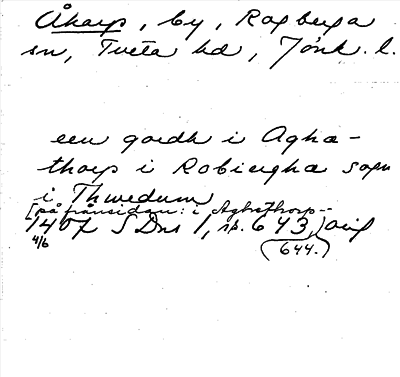 Åharp, by, Rogberga
sn, Tveta hd, Jönk. l.
een gardh i Agha-
thorp i Robiergha sogn
i Thwedum
[på frånsidan: i Aghathorp--
1407 SDns 1, nr. 643,) orig
4/6
(644.)